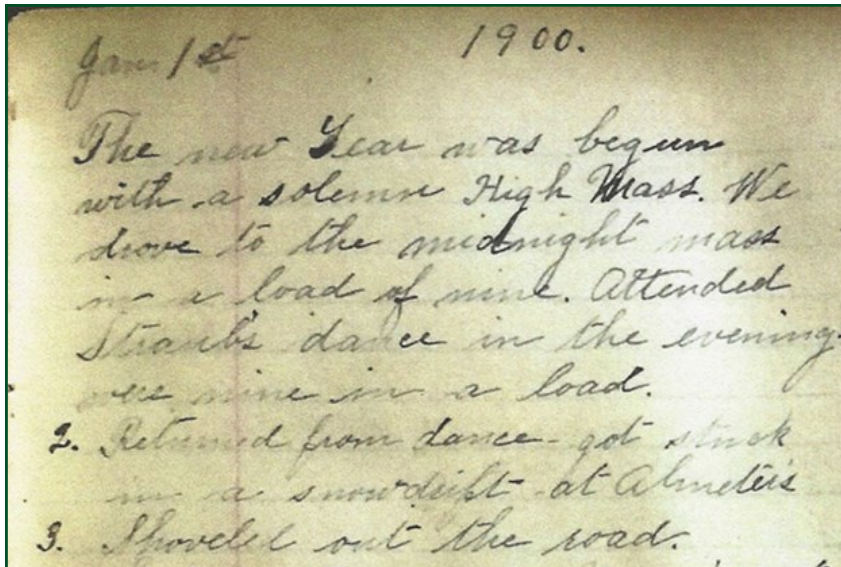 Jan 1st 1900.
The new Year was begun
with a solemn High Mass. We
drove to the midnight mass
in a load of nine. Attended
Straub's dance in the evening.
were nine in a load.
2. Returned from dance - got stuck
in a snowdrift at Almeter's
3. Shoveled out the road.